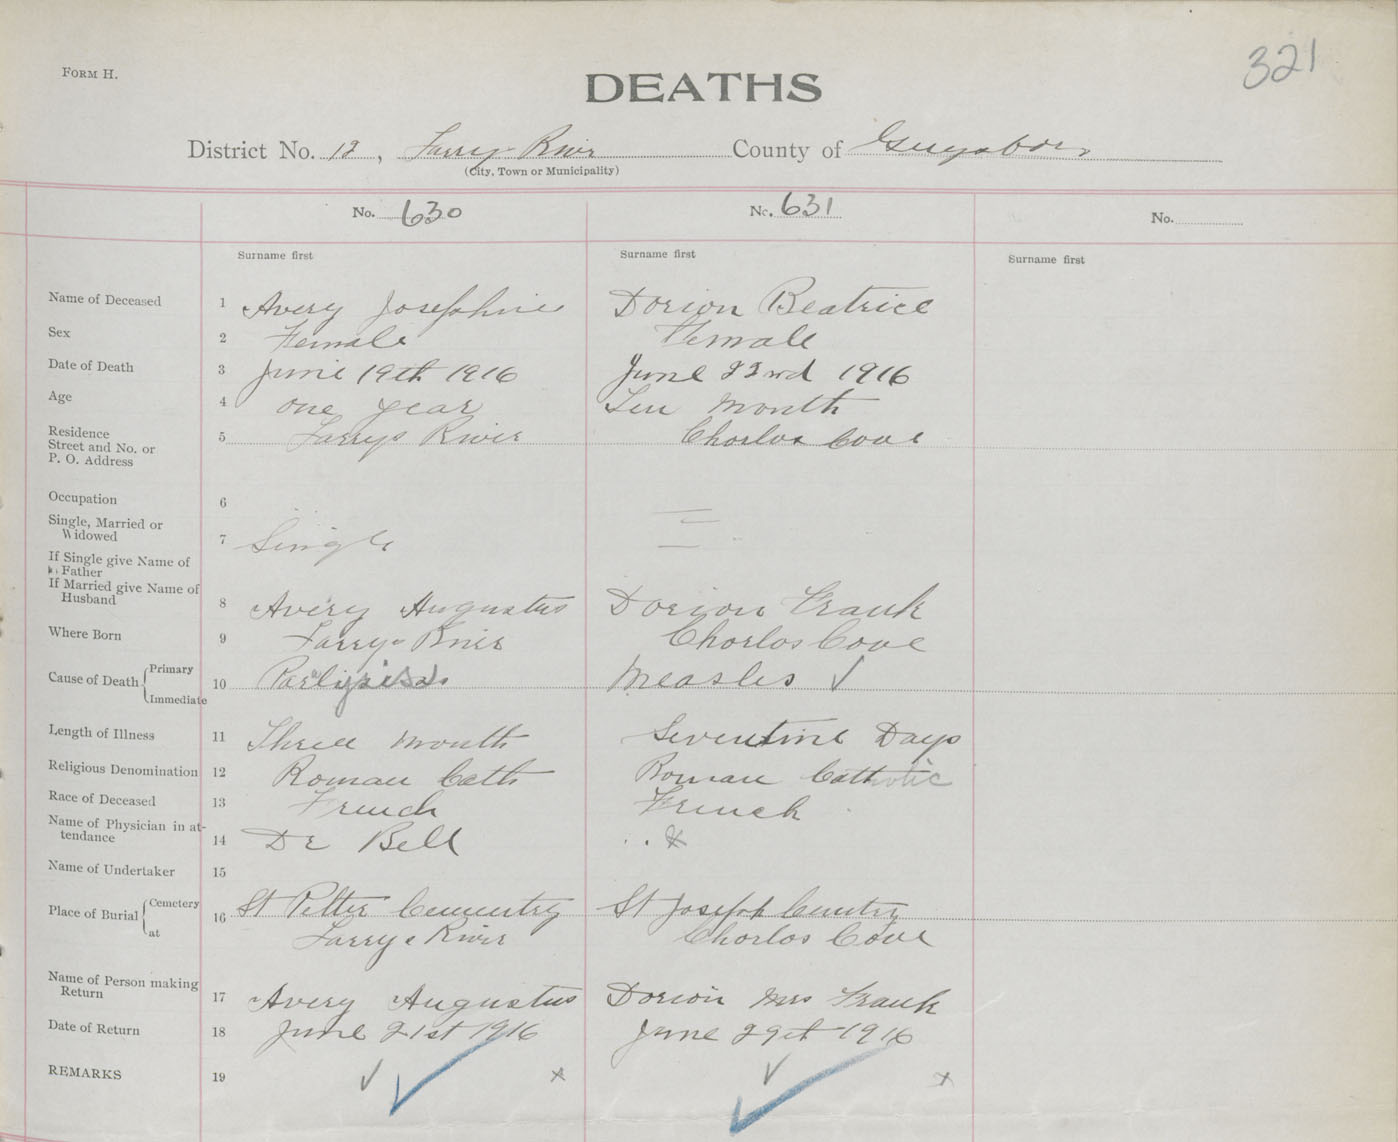 321
FORM H.
DEATHS
District No. 12, Larrys River County of Guysboro
(City, Town or Municipality)
No. 630 No. 631 No.
Surname first Surname first Surname first
Name of Deceased 1 Avery Josephine Dorion Beatrice
Sex 2 Female Female
Date of Death 3 June 19th 1916 June 23rd 1916
Age 4 one year Ten month
Residence
Street and No. or
P. O. Address 5 Larrys River Chorlos Cove
Occupation 6
Single, Married or
Widowed 7 Single
If Single give Name of
Father
If Married give Name of
Husband 8 Avery Augustus Dorion Frank
Where Born 9 Larrys River Chorlos Cove
Cause of Death Primary
Immediate 10 Measles ✓
Length of Illness 11 Three month Seventine Days
Religious Denomination 12 Roman Cath Roman Catholic
Race of Deceased 13 French French
Name of Physician in at-
tendance 14 Dr Bell x
Name of Undertaker 15
Place of Burial Cemetery
at 16 St Petter Cementry St Joseph Cemtry
Larrys River Chorlos Cove
Name of Person making
Return 17 Avery Augustus Dorion Mrs Frank
Date of Return 18 June 21st 1916 June 29et 1916
REMARKS 19 ✓ ✓ x ✓ ✓ x